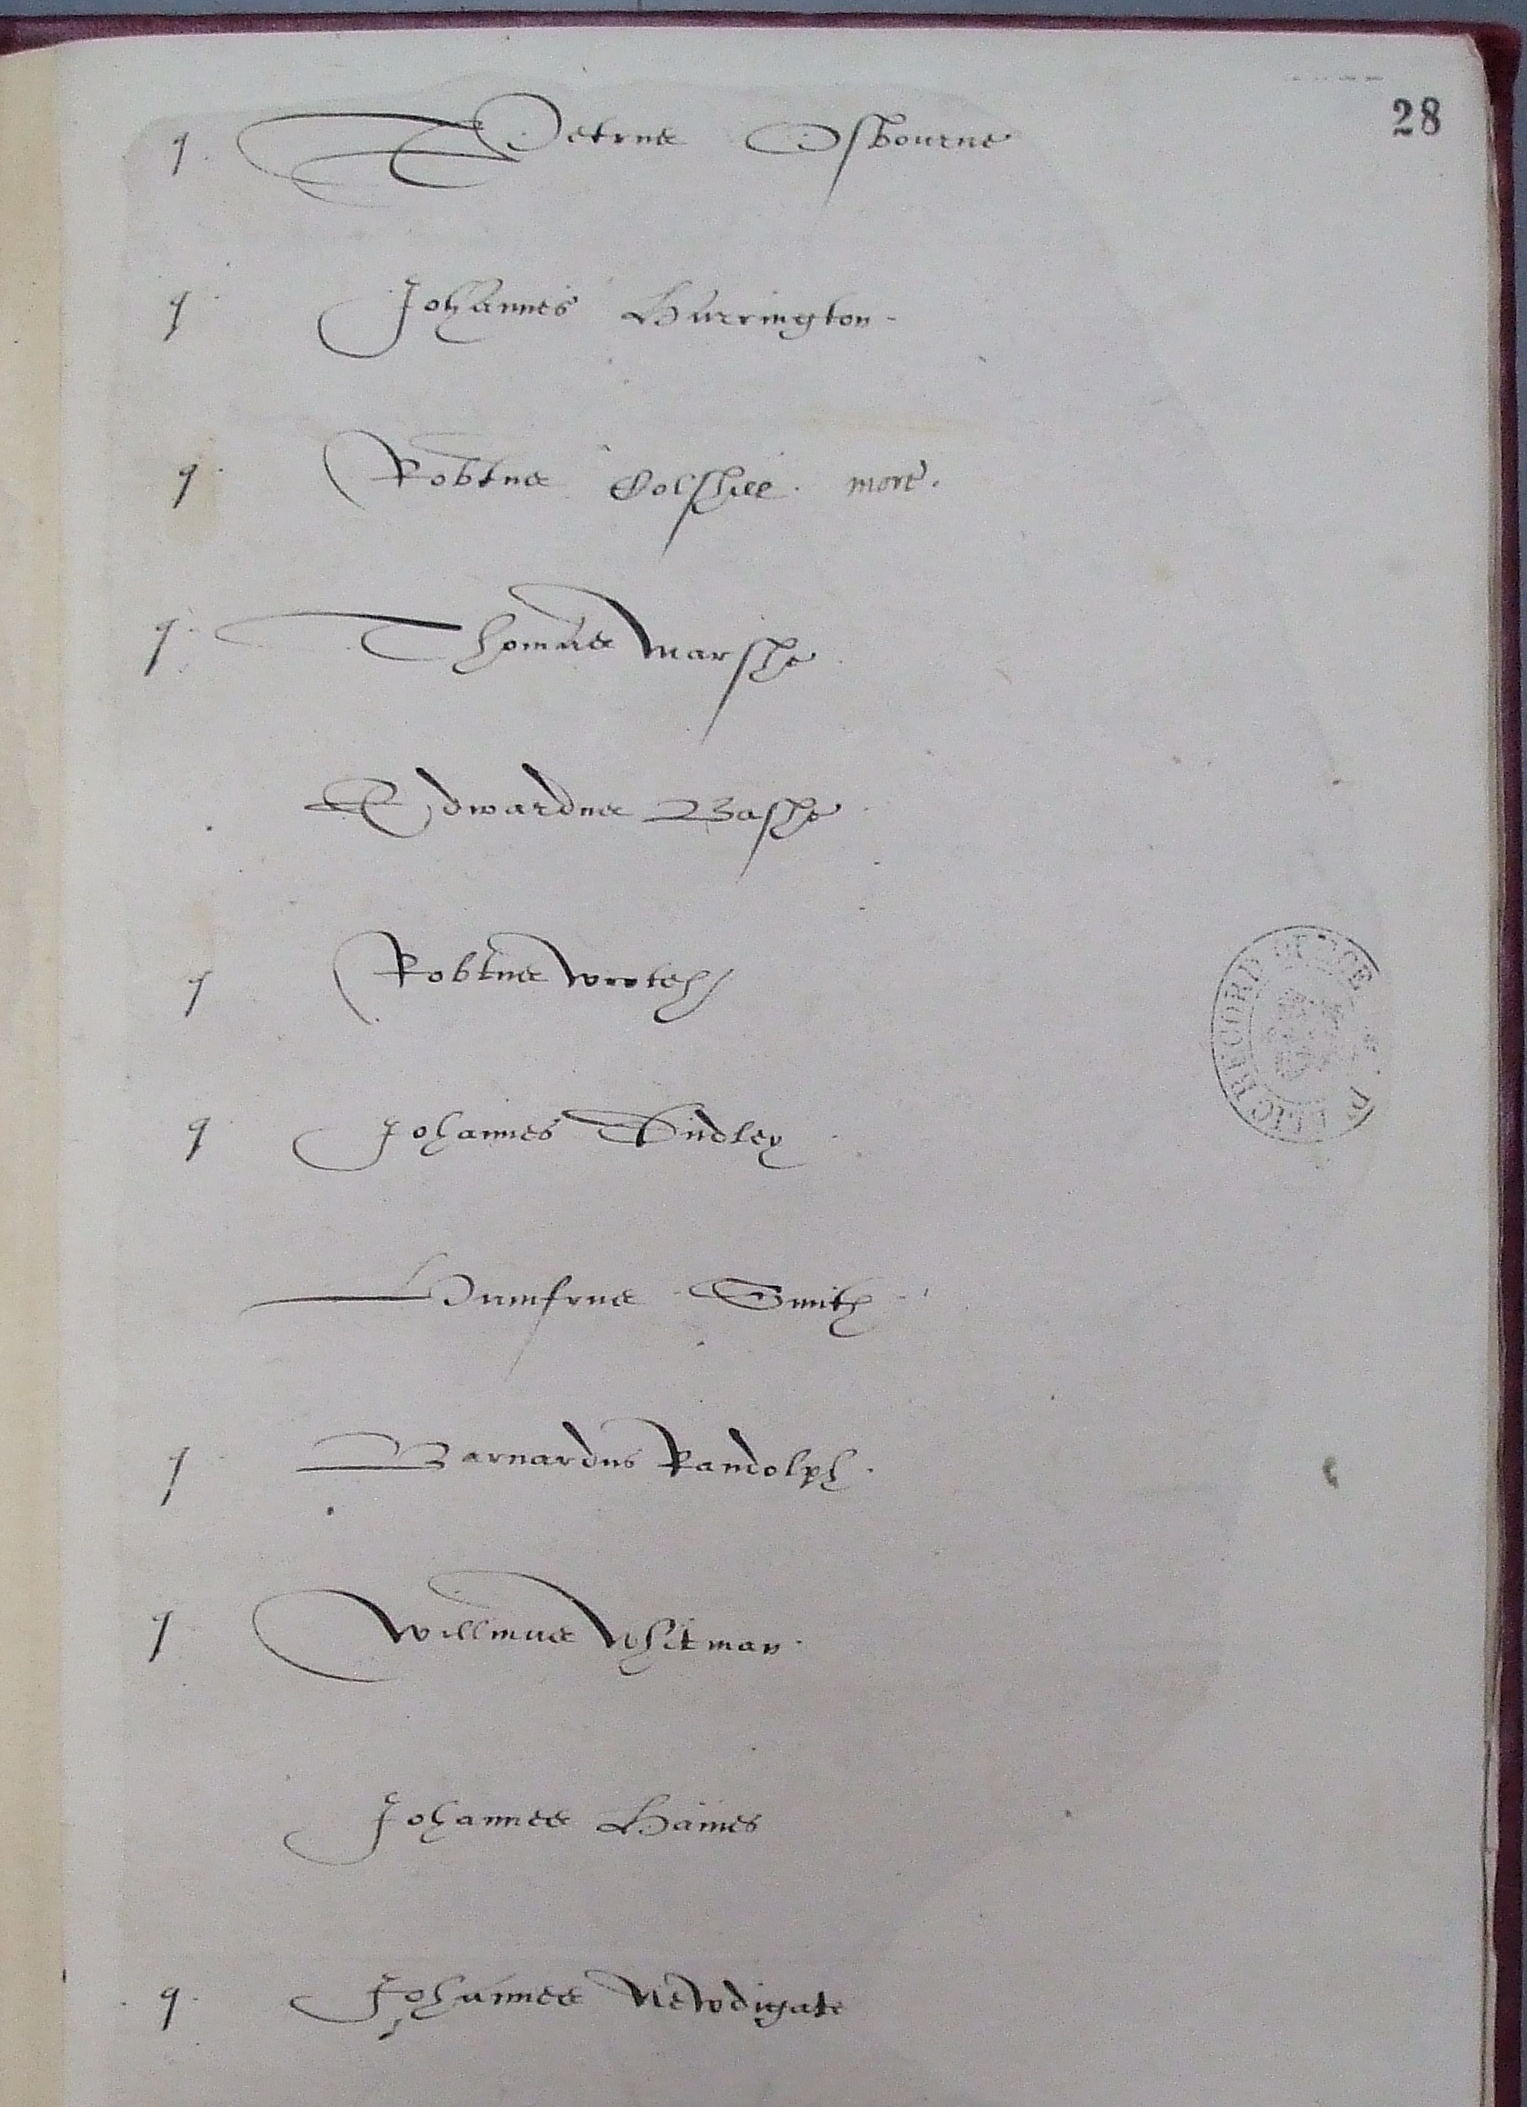 28
q. Petrus Osbourne
q Johannes Harrington
q Robtus Colshill. mort.
q Thomas Marshe
Edwardus Bashe
q Robtus Wroteh
q Johannes Dudley
Humfrus Smith
q Barnardus Randolph.
q Willmus Whitman.
Johannes Haines
q Johannes Newdigate
RECORD